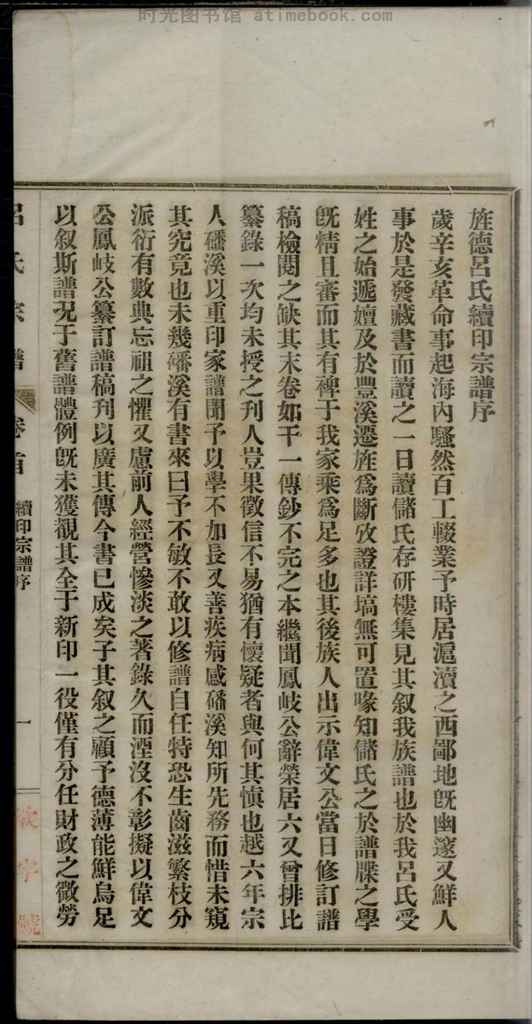 时光图书馆 atimebook.com
旌德呂氏續印宗譜序
歲辛亥革命事起海內騷然百工輟業予時居滬瀆之西鄙地旣幽邃又鮮人
事於是發藏書而讀之一日讀儲氏存研樓集見其叙我族譜也於我呂氏受
姓之始遞嬗及於豐溪遷旌爲斷攷證詳塙無可置喙知儲氏之於譜牒之學
旣精且審而其有裨于我家乘爲足多也其後族人出示偉文公當日修訂譜
稿檢閱之缺其末卷如干一傳鈔不完之本繼聞鳳岐公辭榮居六又曾排比
纂錄一次均未授之刋人豈果徵信不易猶有懷疑者與何其愼也越六年宗
人磻溪以重印家譜聞予以學不加長又善疾病感磻溪知所先務而惜未窺
其究竟也未幾磻溪有書來曰予不敏不敢以修譜自任特恐生齒滋繁枝分
派衍有數典忘祖之懼又慮前人經營慘淡之著錄久而湮沒不彰擬以偉文
公鳳岐公纂訂譜稿刋以廣其傳今書已成矣子其叙之顧予德薄能鮮烏足
以叙斯譜況于舊譜體例旣未獲覩其全于新印一役僅有分任財政之微勞
呂氏宗譜
卷首
續印宗譜序
一
字號